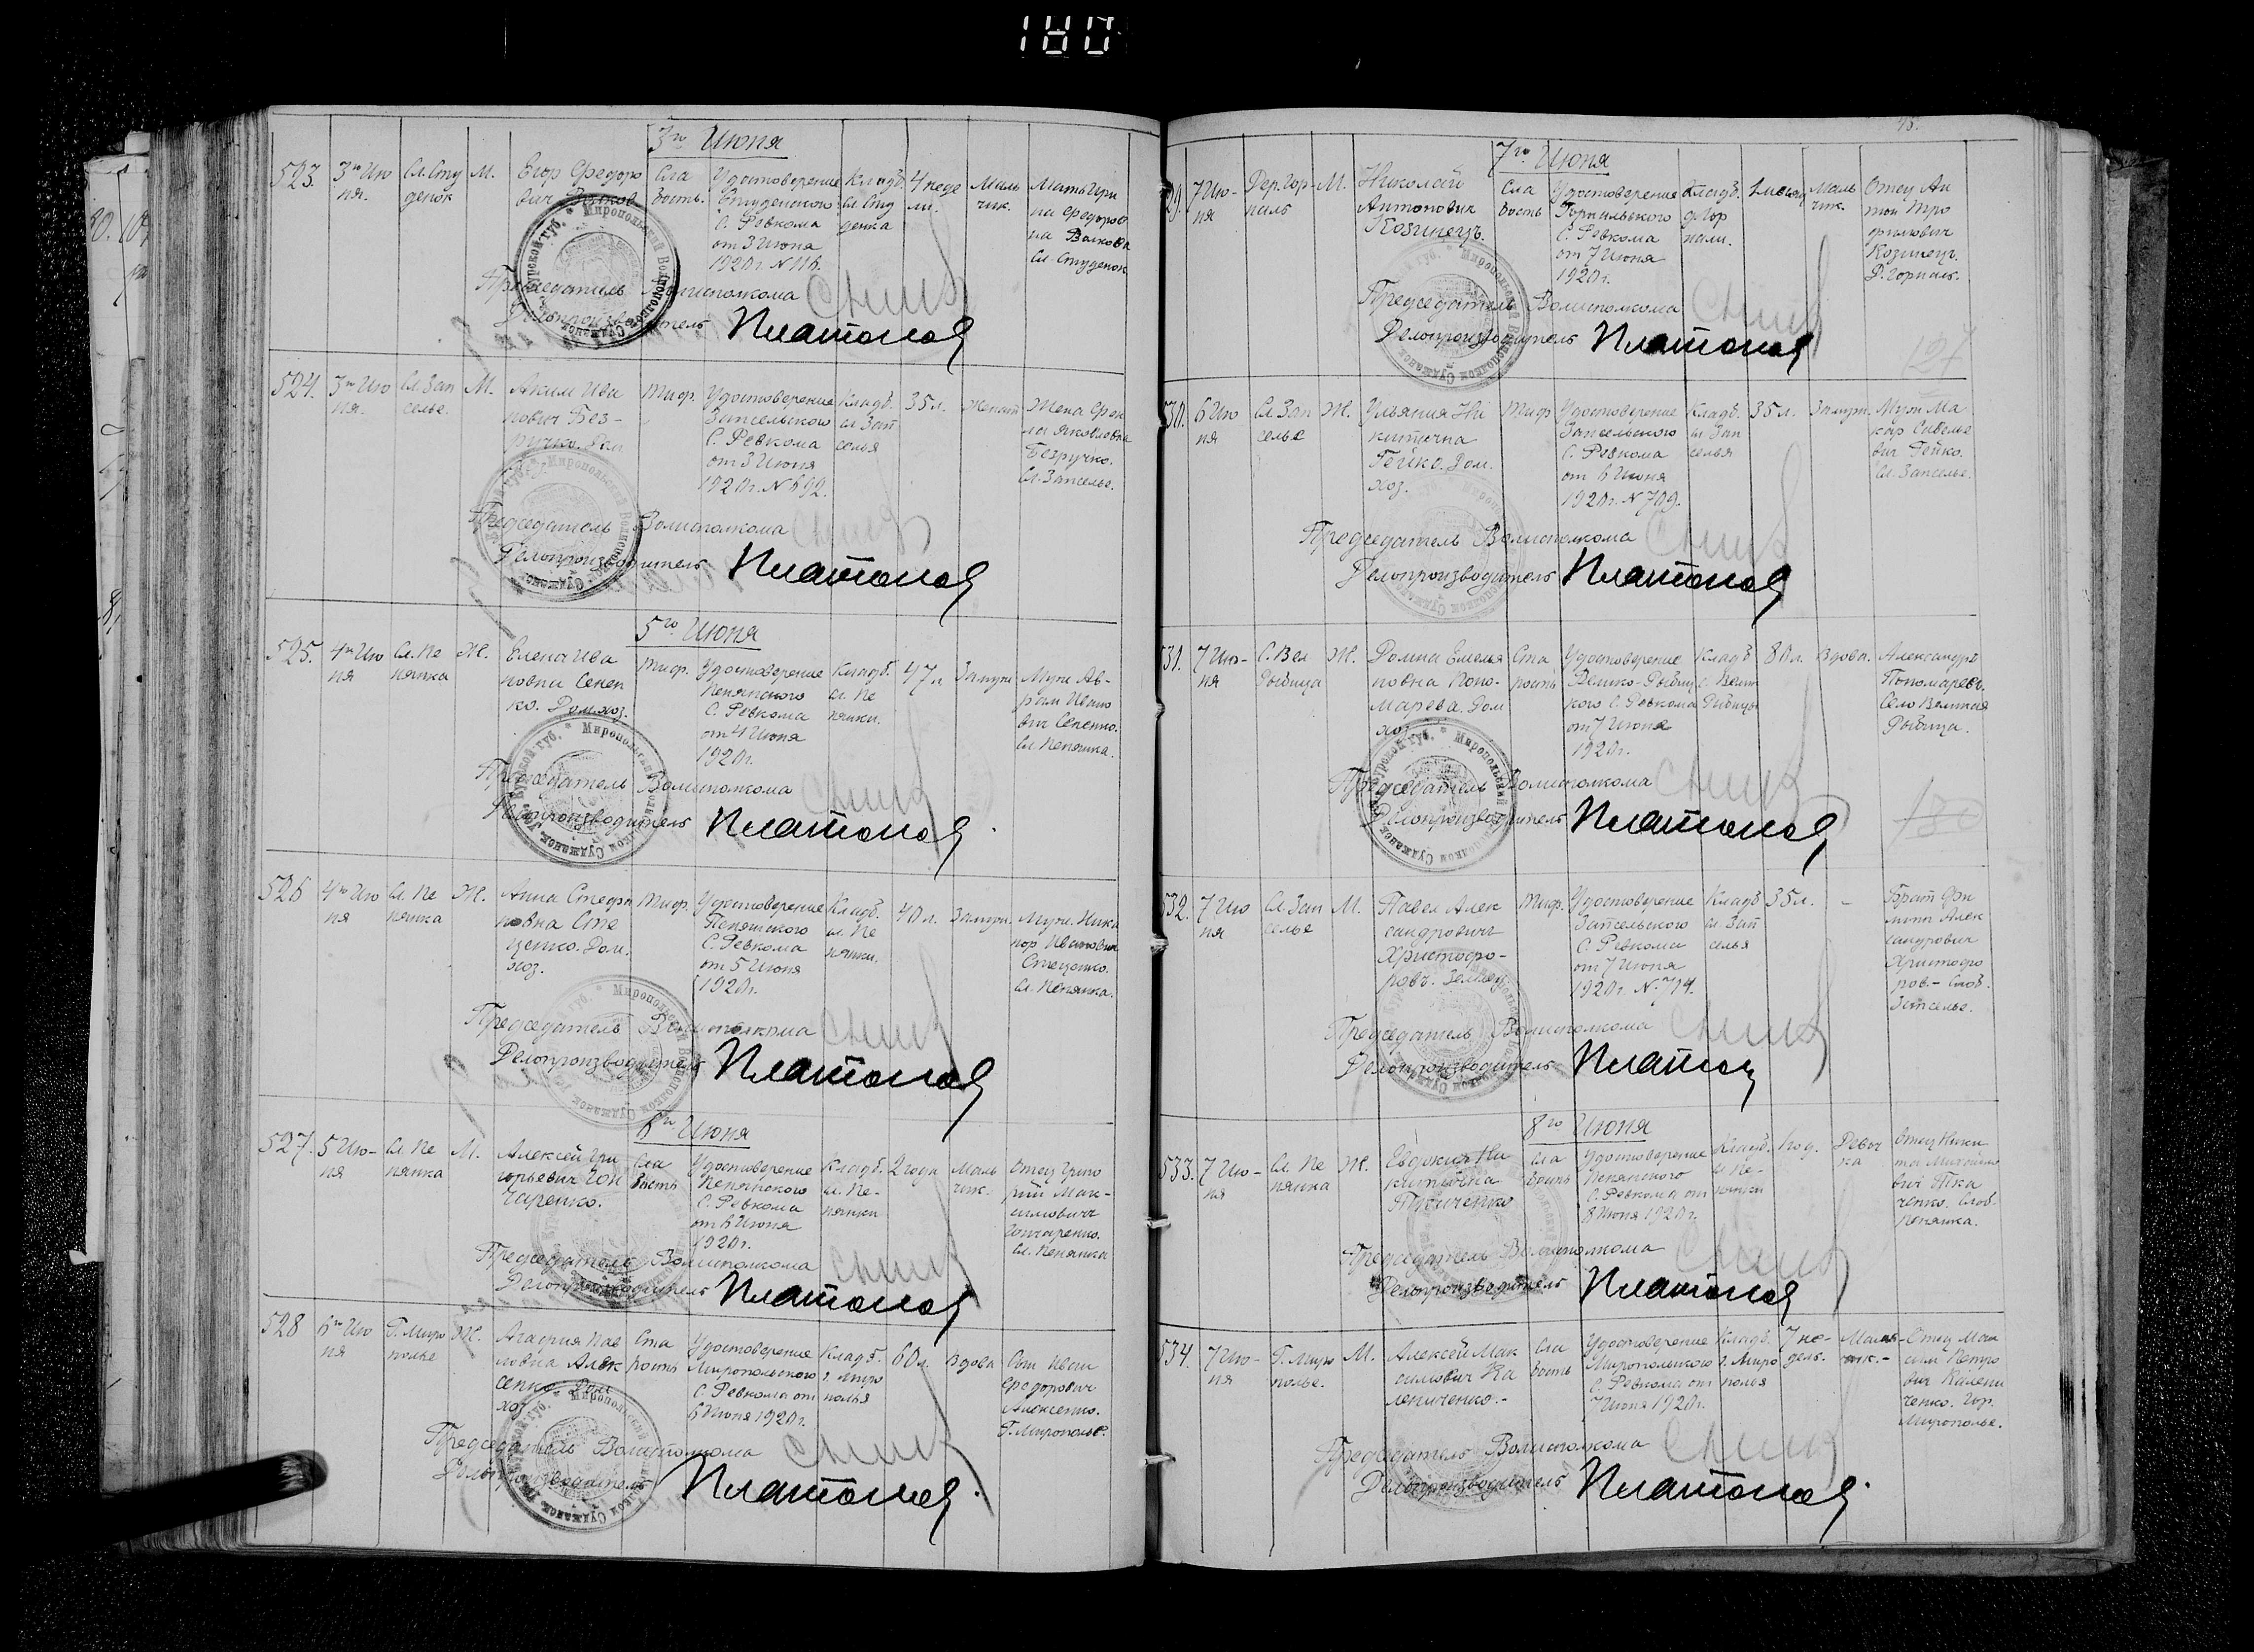 180
3го Июня
523. 3го Июня. Сл. Студенок М. Егор Федорович Волков Слабость. Удостоверение Студенского С. Ревкома от 3 Июня 1920 г. N 116. Кладб. сл. Студенка 4 недели. Мальчик. Мать Ирина Федоровна Волкова Сл. Студенок
Председатель Волисполкома
Делопроизводитель Платонов
524. 3го Июня. Сл. Запселье. М. Аким Иванович Безручко. Тиф. Удостоверение Запсельского С. Ревкома от 3 Июня 1920 г. N 692. Кладб. сл. Запселья 35 л. Женат Жена Яковлевна Безручко. Сл. Запселье.
Председатель Волисполкома
Делопроизводитель Платонов
5го Июня
525. 4го Июня Сл. Пенянка Ж. Елена Ивановна Сененко. Дом. хоз. Тиф. Удостоверение Пенянского С. Ревкома от 4 Июня 1920 г. Кладб. сл. Пенянки. 47 л. Замуж. Муж Аврам Иванович Сененко. Сл. Пенянка.
Председатель Волисполкома
Делопроизводитель Платонов
526 4го Июня Сл. Пенянка Ж. Анна Стефановна Стеценко. Дом. хоз. Тиф. Удостоверение Пенянского С. Ревкома от 5 Июня 1920 г. Кладб. сл. Пенянки. 40 л. Замуж. Муж. Никанор Иванович Стеценко. Сл. Пенянка.
Председатель Волисполкома
Делопроизводитель Платонов
6го Июня
527. 5 Июня Сл. Пенянка М. Алексей Григорьевич Гончаренко. Слабость Удостоверение Пенянского С. Ревкома от 6 Июня 1920 г. Кладб. сл. Пенянки 2 года Мальчик. Отец Григорий Максимович Гончаренко. Сл. Пенянка
Председатель Волисполкома
Делопроизводитель Платонов
528 6го Июня Г. Мирополье Ж. Агафия Павловна Алексенко Дом. хоз. Старость Удостоверение Миропольского С. Ревкома от 6 Июня 1920 г. Кладб. г. Мирополья 60 л. Вдова Сын Иван Федорович Алексенко. Г. Мирополье.
Председатель Волисполкома
Делопроизводитель Платонов
7го Июня
29. 7 Июня Дер. Горналь М. Николай Антонович Козинец. Слабость Удостоверение Горнальского С. Ревкома от 7 Июня 1920 г. Кладб. д. Горнали. Мальчик. Отец Антон Трофимович Козинец. Д. Горналь.
Председатель Волисполкома
Делопроизводитель Платонов
127
530. 6 Июня Сл. Запселье Ж. Ульяния Никитична Гейко. Дом. хоз. Тиф Удостоверение Запсельского С. Ревкома от 6 Июня 1920 г. N 709. Кладб. сл. Запселья 35 л. Замуж. Муж Макар Савельевич Гейко. Сл. Запселье.
Председатель Волисполкома
Делопроизводитель Платонов
531. 7 Июня С. Вел Рыбица Ж. Домна Емельяновна Пономарева. Дом хоз. Старость Удостоверение Велико-Рыбицкого С. Ревкома от 7 Июня 1920 г. Кладб с. Велик Рыбицы 80 л. Вдова. Александръ Пономаревъ. Село Великая Рыбица.
Председатель Волисполкома
Делопроизводитель Платонов
180
532. 7 Июня Сл. Запселье М. Павел Александрович Христофоровъ. Землед Тиф. Удостоверение Запсельского С. Ревкома от 7 Июня 1920 г. N. 714. Кладб сл. Запселья 35 л. - Брат Филипп Александрович Христофоров. - Слоб. Запселье.
Председатель Волисполкома
Делопроизводитель Платонов
8го Июня
533. 7 Июня Сл. Пенянка Ж. Евдокия Никитовна Ткаченко Слабость Удостоверение Пенянского С. Ревкома от 8 Июня 1920 г. Кладб. сл. Пенянки Девочка Отец Никита Михайлович Ткаченко. Слоб. Пенянка.
Председатель Волисполкома
Делопроизводитель Платонов
534. 7 Июня Г. Мирополье. М. Алексей Максимович Калениченко. - Слабость Удостоверение Миропольского С. Ревкома от 7 Июня 1920 г. Кладб. г. Мирополья 7 недель. Мальчик. - Отец Максим Петрович Калениченко. Гор. Мирополье.
Председатель Волисполкома
Делопроизводитель Платонов